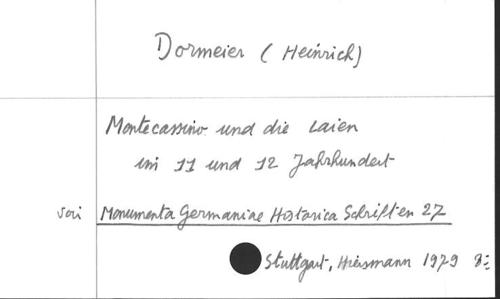 Dormeier (Heinrich)
Montecassino und die Laien
im 11 und 12 Jahrhundert
Monumenta Germaniae Historica Schriften 27
Stuttgart, Hiersmann 1979 8: